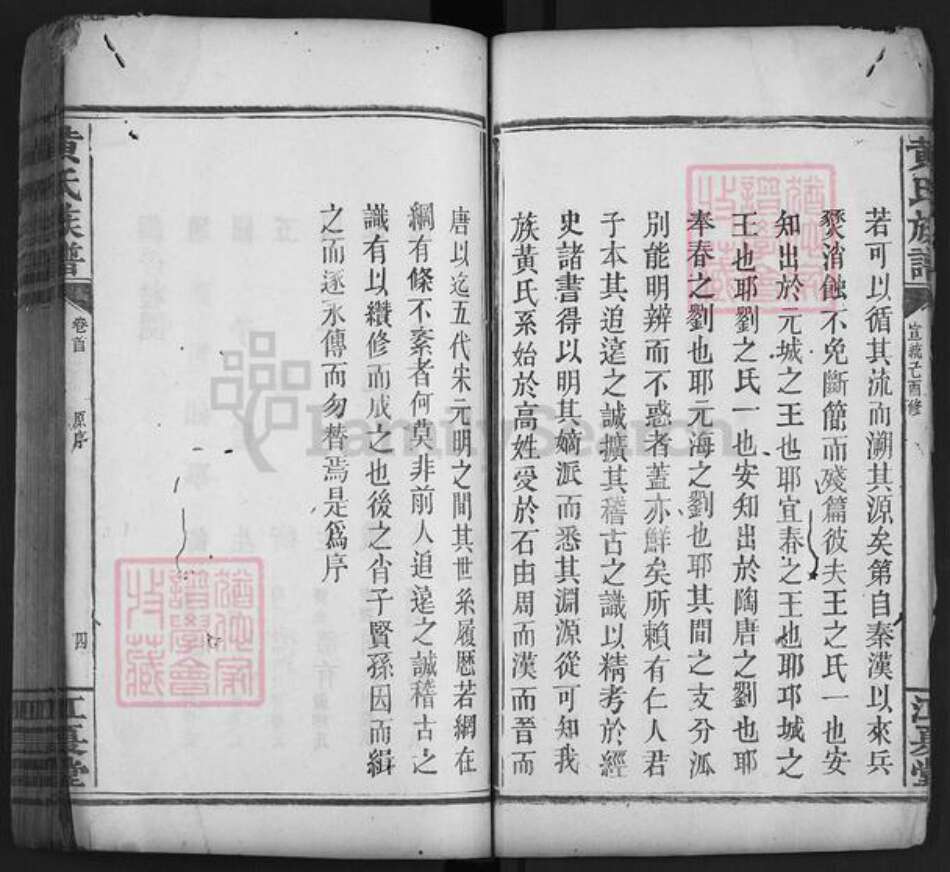 黃氏族譜
宣統己酉修
江夏堂
若可以循其流而溯其源矣第自秦漢以來兵
燹消蝕不免斷簡而殘篇彼夫王之氏一也安
知出於元城之王也耶宜春之王也耶邛城之
王也耶劉之氏一也安知出於陶唐之劉也耶
奉春之劉也耶元海之劉也耶其間之支分派
別能明辨而不惑者蓋亦鮮矣所賴有仁人君
子本其追遠之誠擴其稽古之識以精考於經
史諸書得以明其嫡派而悉其淵源從可知我
族黃氏系始於高姓受於石由周而漢而晉而
唐以迄五代宋元明之間其世系履歷若網在
綱有條不紊者何莫非前人追遠之誠稽古之
識有以纘修而成之也後之肖子賢孫因而緝
之而遂永傳而勿替焉是爲序
黃氏族譜
卷首
原序
四
江夏堂
FamilySearch